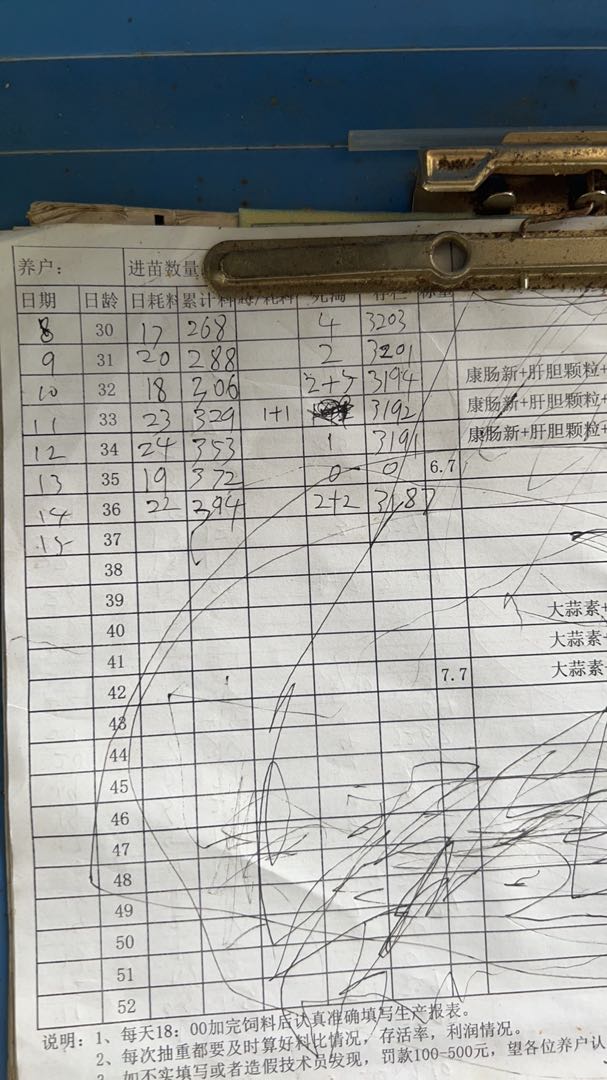 养户： 进苗数量
日期 日龄 日耗料 累计料 每/耗料 死淘 存栏 称重
8 30 17 268 4 3203
9 31 20 288 2 3201
10 32 18 306 2+5 3194 康肠新+肝胆颗粒+
11 33 23 329 1+1 3192 康肠新+肝胆颗粒+
12 34 24 353 1 3191 康肠新+肝胆颗粒+
13 35 19 372 0 0 6.7
14 36 22 394 2+2 3187
15 37
38
39
40 大蒜素+
41 大蒜素+
42 7.7 大蒜素+
43
44
45
46
47
48
49
50
51
52
说明：1、每天18：00加完饲料后认真准确填写生产报表。
2、每次抽重都要及时算好料比情况，存活率，利润情况。
3、如不实填写或者造假技术员发现，罚款100-500元，望各位养户认